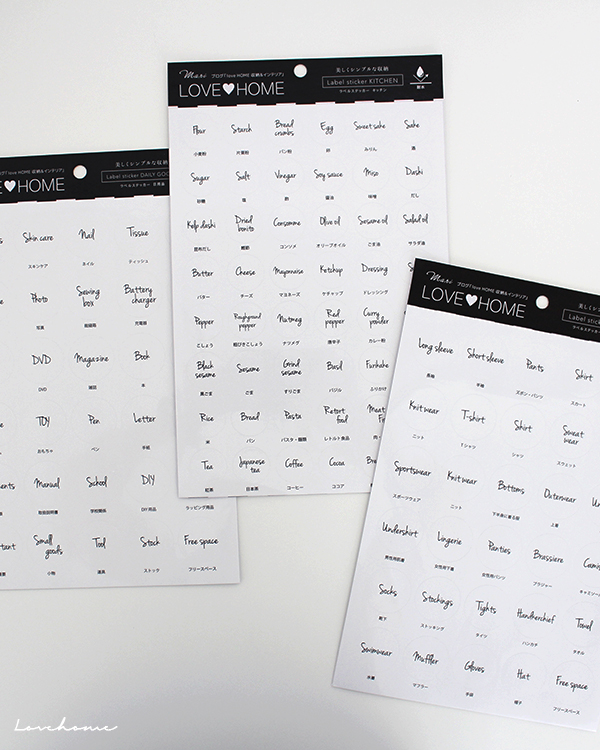 Mari ブログ「love HOME 収納&インテリア」
LOVE♥HOME
美しくシンプルな収納
Label sticker KITCHEN
ラベルステッカー キッチン
耐水
Flour Starch Bread crumbs Egg Sweet sake Sake
小麦粉 片栗粉 パン粉 卵 みりん 酒
Sugar Salt Vinegar Soy sauce Miso Dashi
砂糖 塩 酢 醤油 味噌 だし
Kelp dashi Dried bonito Consomme Olive oil Sesame oil Salad oil
昆布だし 鰹節 コンソメ オリーブオイル ごま油 サラダ油
Butter Cheese Mayonnaise Ketchup Dressing
バター チーズ マヨネーズ ケチャップ ドレッシング
Pepper Roughground pepper Nutmeg Red pepper Curry powder
こしょう 粗びきこしょう ナツメグ 唐辛子 カレー粉
Black sesame Sesame Grind sesame Basil Furikake
黒ごま ごま すりごま バジル ふりかけ
Rice Bread Pasta Retort food Meat
米 パン パスタ・麺類 レトルト食品 肉
Tea Japanese tea Coffee Cocoa
紅茶 日本茶 コーヒー ココア
ブログ「love HOME 収納&インテリア」
VE♥HOME
美しくシンプルな収納
Label sticker DAILY GOO
ラベルステッカー 日用品
Skin care Nail Tissue
スキンケア ネイル ティッシュ
Photo Sewing box Battery charger
写真 裁縫箱 充電器
DVD Magazine Book
DVD 雑誌 本
TOY Pen Letter
おもちゃ ペン 手紙
ents Manual School DIY
取扱説明書 学校関係 DIY用品 ラッピング用品
tant Small goods Tool Stock Free space
小物 道具 ストック フリースペース
Mari ブログ「love HOME 収納&インテリア」
LOVE♥HOME
美しくシンプルな
Label sticker
ラベルステッカー
Long sleeve Short sleeve Pants Skirt
長袖 半袖 ズボン・パンツ スカート
Knit wear T-shirt Shirt Sweat wear
ニット Tシャツ シャツ スウェット
Sportswear Knit wear Bottoms Outerwear
スポーツウェア ニット 下半身に着る服 上着
Undershirt Lingerie Panties Brassiere Cami
男性用肌着 女性用下着 女性用パンツ ブラジャー キャミソール
Socks Stockings Tights Handkerchief Towel
靴下 ストッキング タイツ ハンカチ タオル
Swimwear Muffler Gloves Hat Free space
水着 マフラー 手袋 帽子 フリースペース
Lovehome